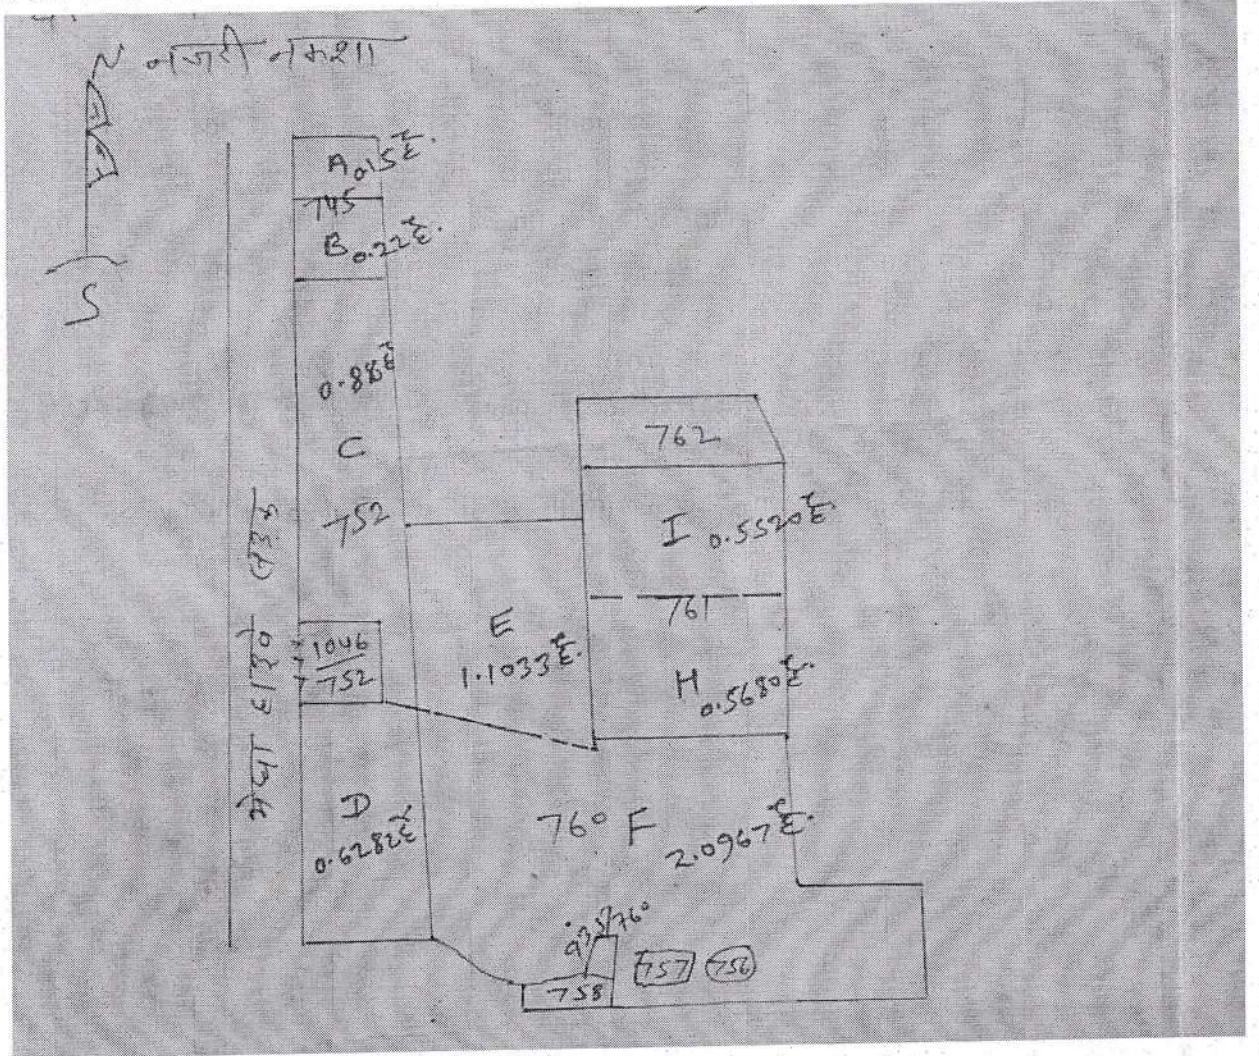 N नजरी नक्शा
S
A 0.15 है.
745
B 0.22 है.
0.88 है
C
752
762
I 0.5520 है.
761
E
1.1033 है.
H 0.5680 है.
1046
752
D
0.6282 है
760 F
2.0967 है.
935/760
757 756
758
सड़क